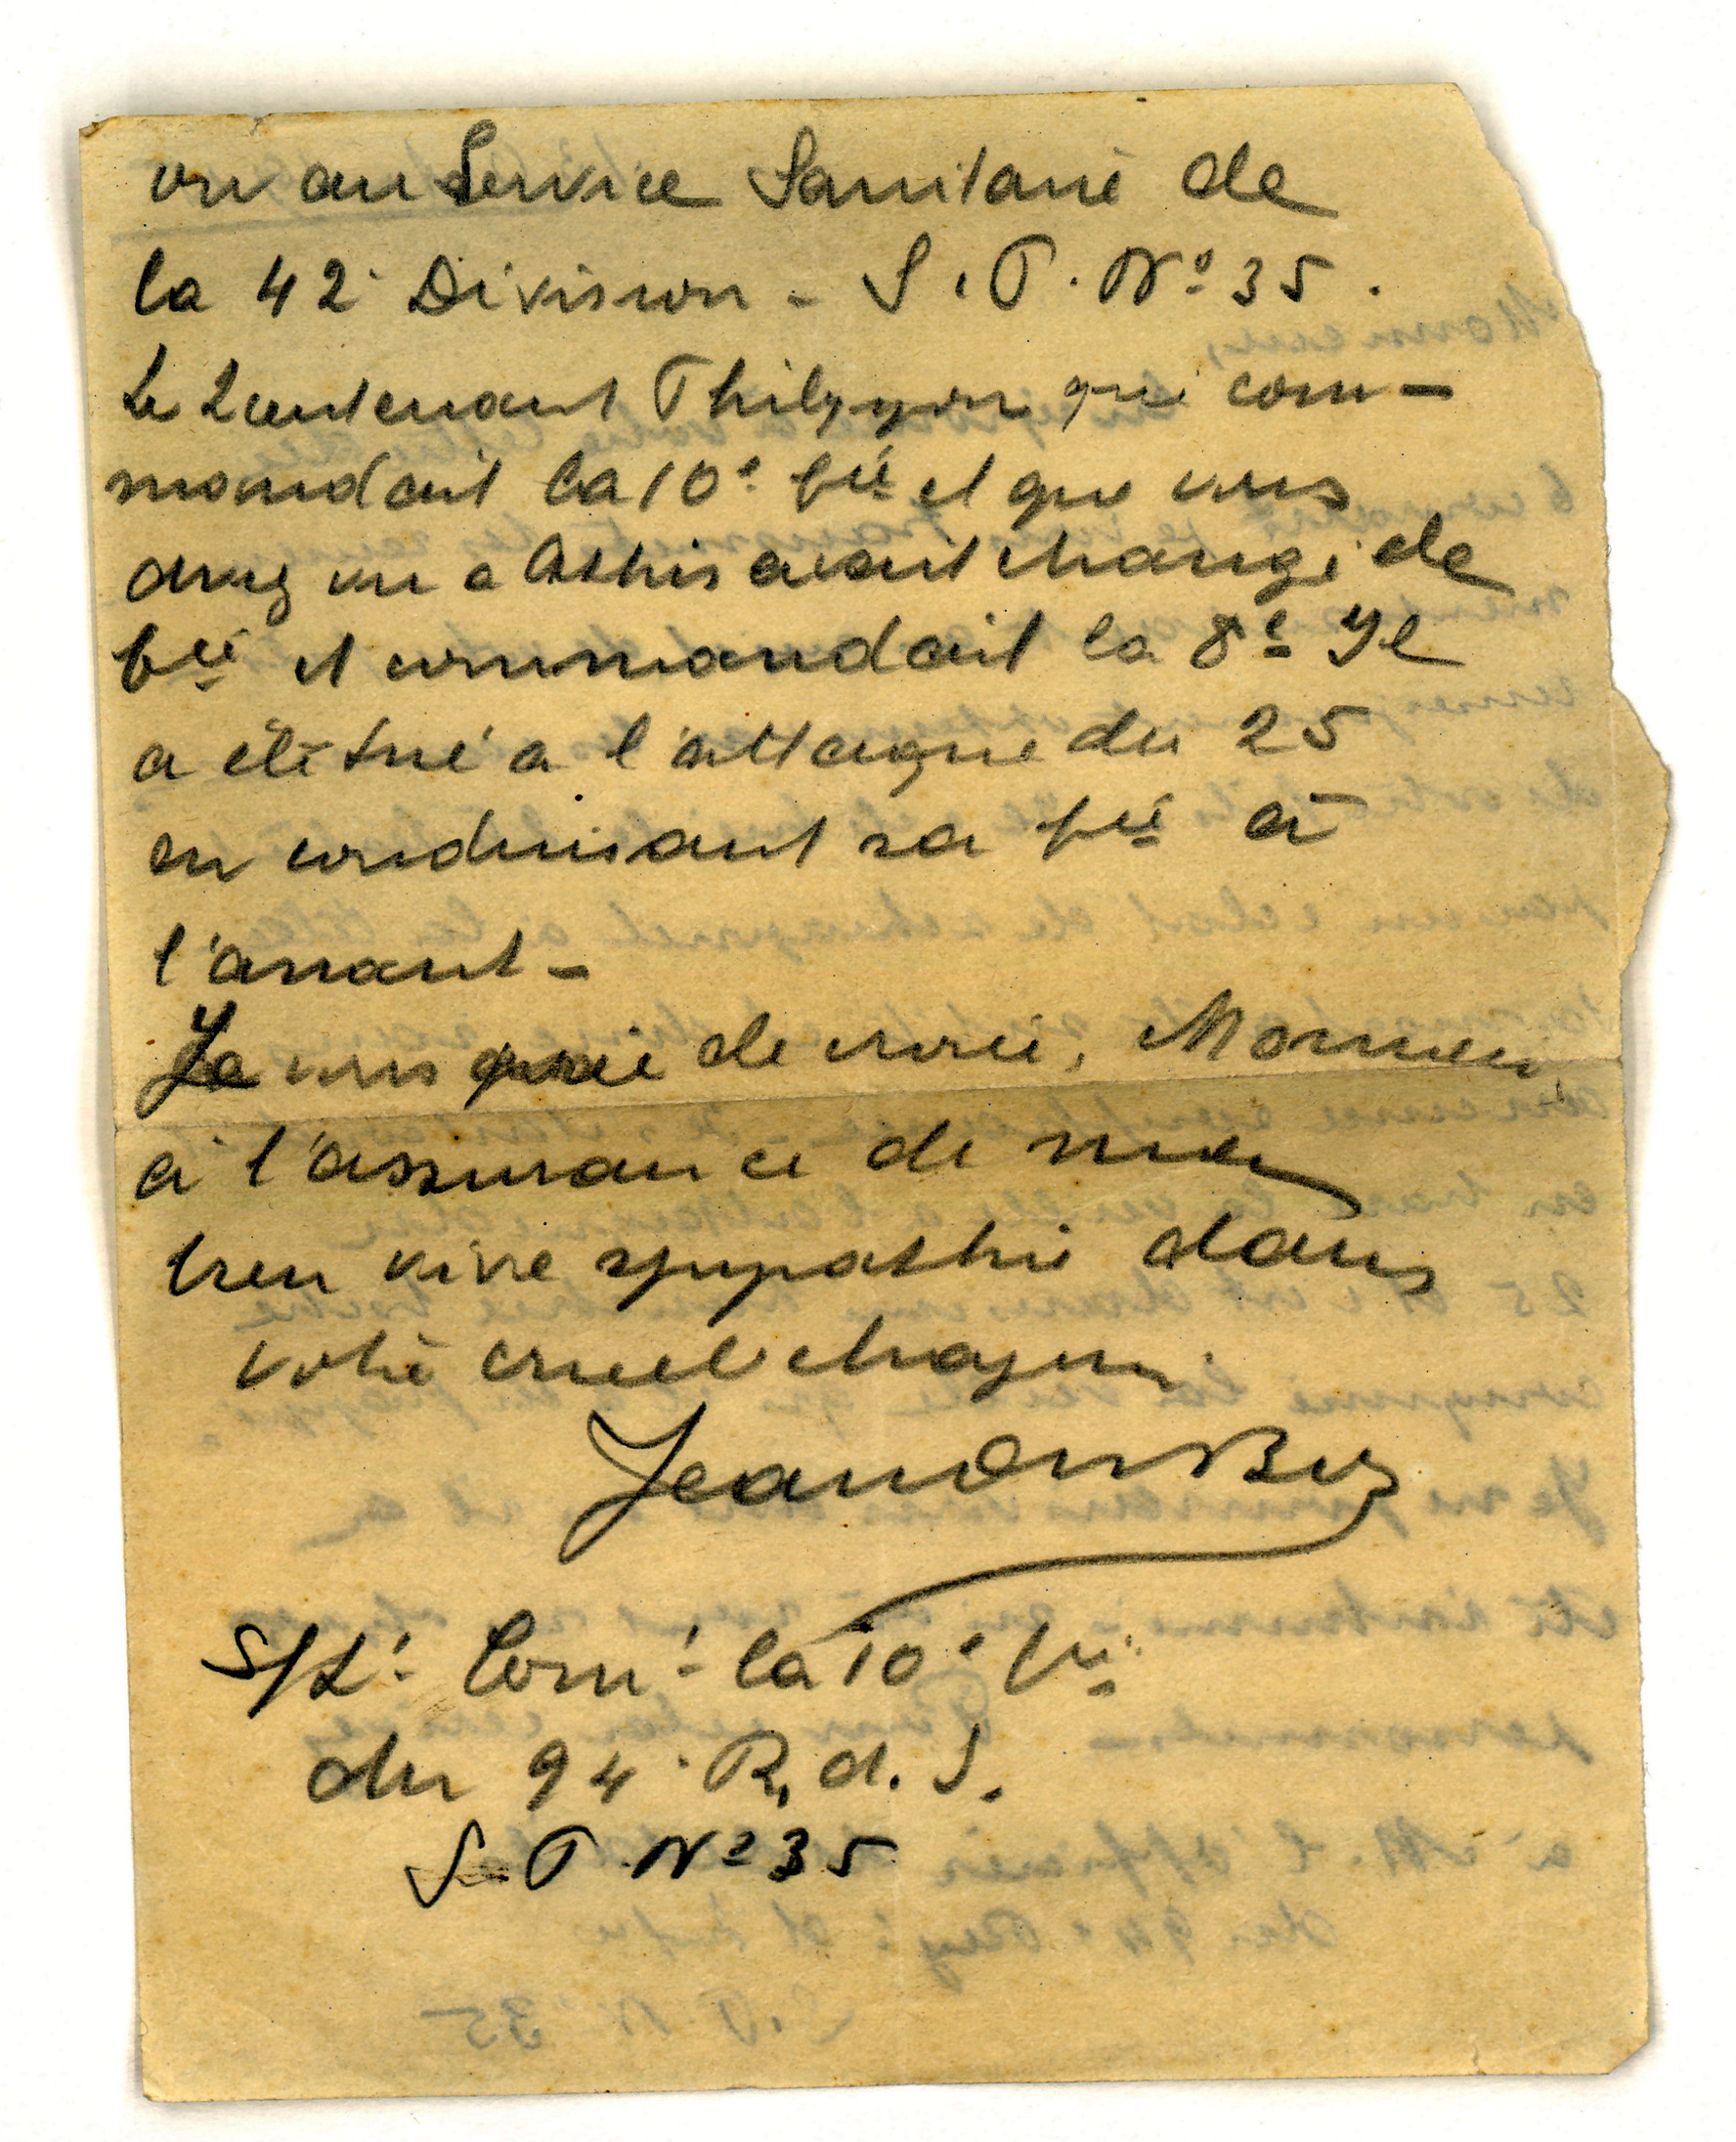 ou au Service Sanitaire de
la 42e Division - S.P. No 35.
Le Lieutenant Philippon qui com-
mandait la 10e Cie et que vous
avez vu à Athis avait changé de
Cie et commandait la 8e Il
a été tué à l'attaque du 25
en conduisant sa Cie à
l'assaut -
Je vous prie de croire, Monsieur,
à l'assurance de ma
bien vive sympathie dans
votre cruel chagrin.
S/Lt Comt la 10e Cie
du 94e R. d. I.
S. P. No 35